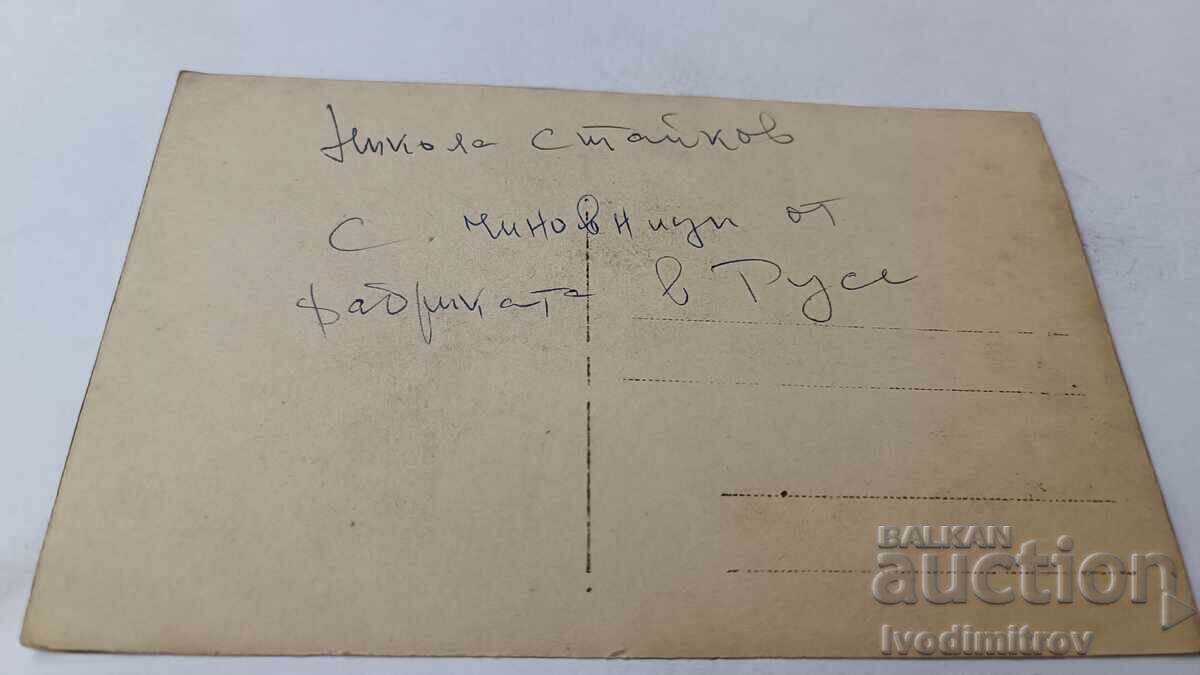 Никола Стайков
с чиновници от
фабриката в Русе
BALKAN
auction
Ivodimitrov